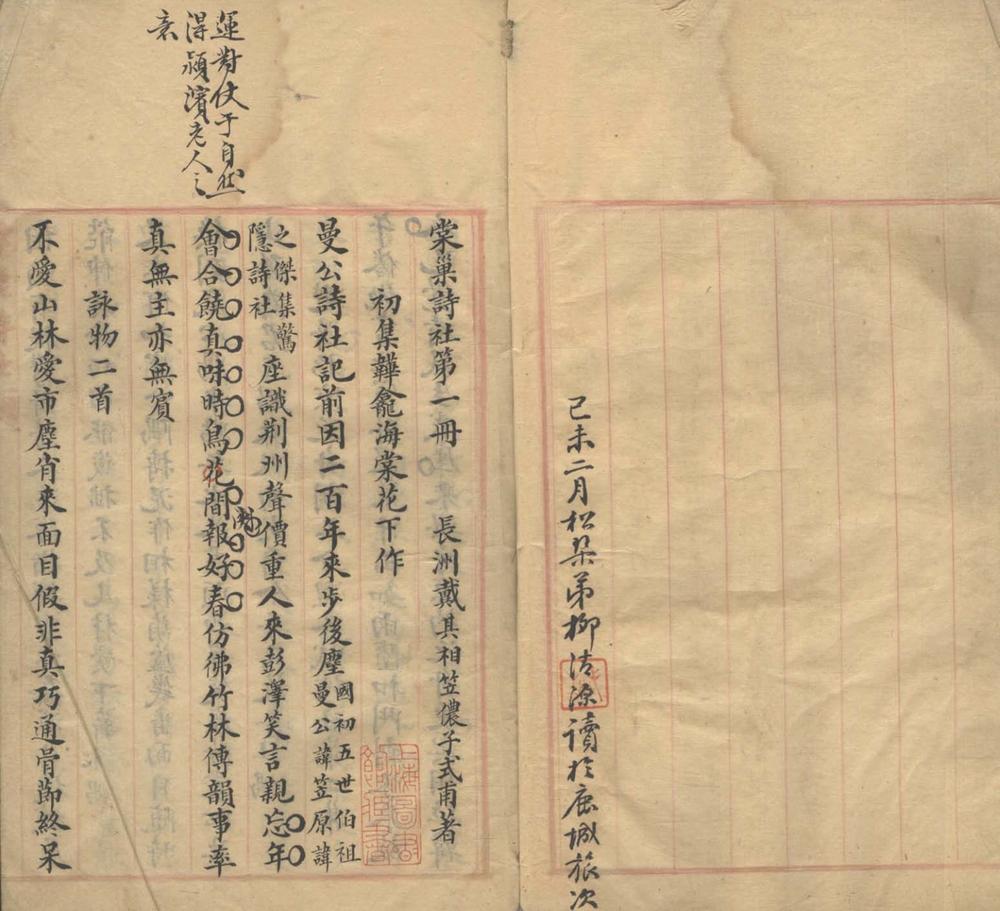 己未二月松琴弟柳清源讀於鹿城旅次
運對仗于自然
得潁濱老人之
衰
棠巢詩社第一冊 長洲戴其相笠儂子式甫著
初集韡龕海棠花下作
曼公詩社記前因二百年來步後塵國初五世伯祖曼公諱笠原諱
之傑集驚隱詩社座識荆州聲價重人來彭澤笑言親忘年
會合饒真味時鳥花間報好春仿彿竹林傳韻事率
真無主亦無賓
詠物二首
不愛山林愛市塵肖來面目假非真巧通骨節終呆
上海圖書館藏書